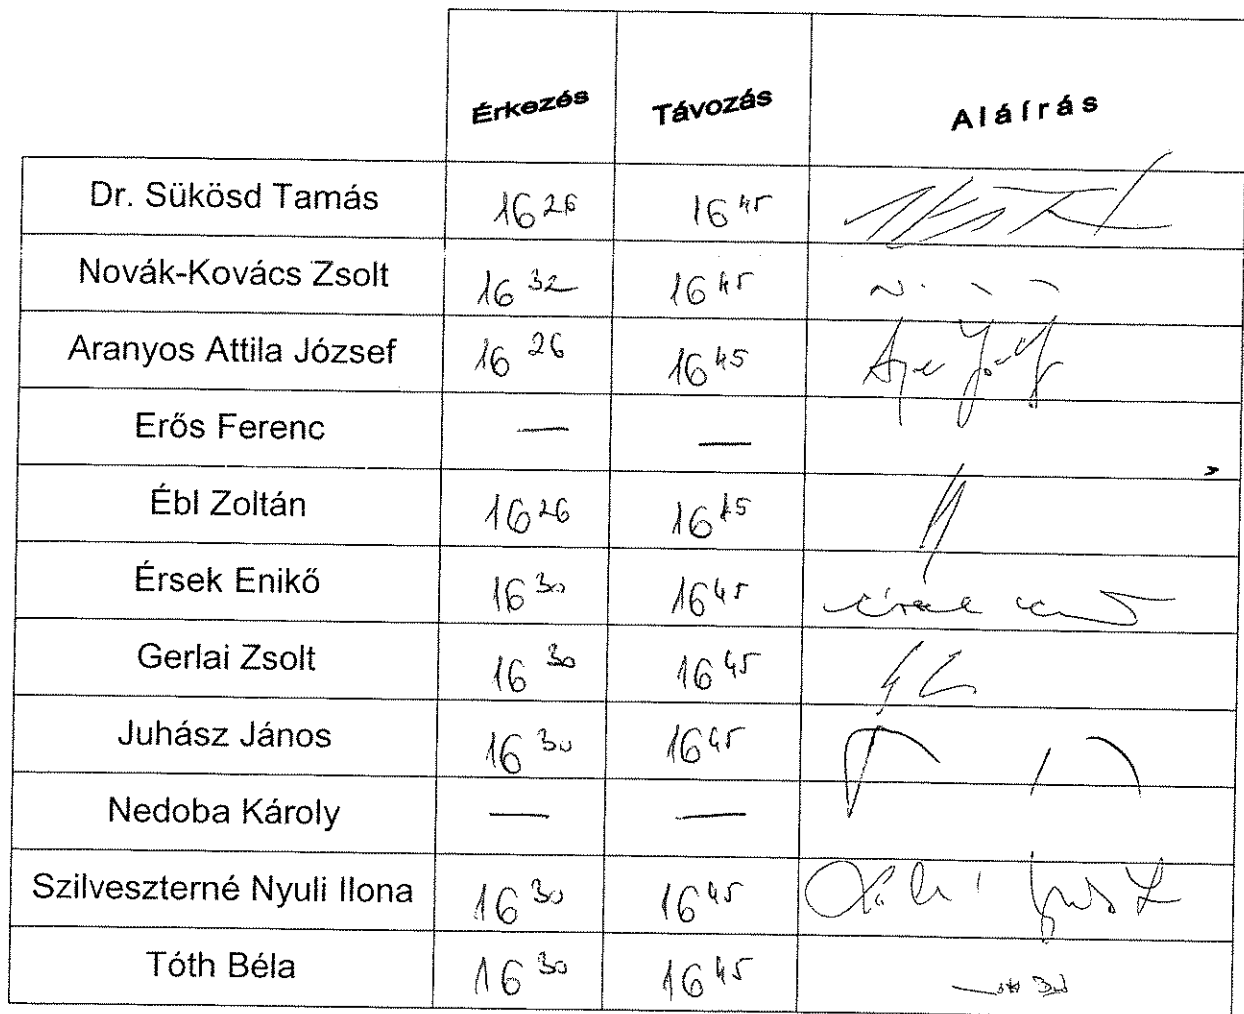 Érkezés Távozás Aláírás
Dr. Sükösd Tamás 16 26 16 45
Novák-Kovács Zsolt 16 32 16 45
Aranyos Attila József 16 26 16 45
Erős Ferenc — —
Ébl Zoltán 16 26 16 45
Érsek Enikő 16 30 16 45
Gerlai Zsolt 16 30 16 45
Juhász János 16 30 16 45
Nedoba Károly — —
Szilveszterné Nyuli Ilona 16 30 16 45
Tóth Béla 16 30 16 45